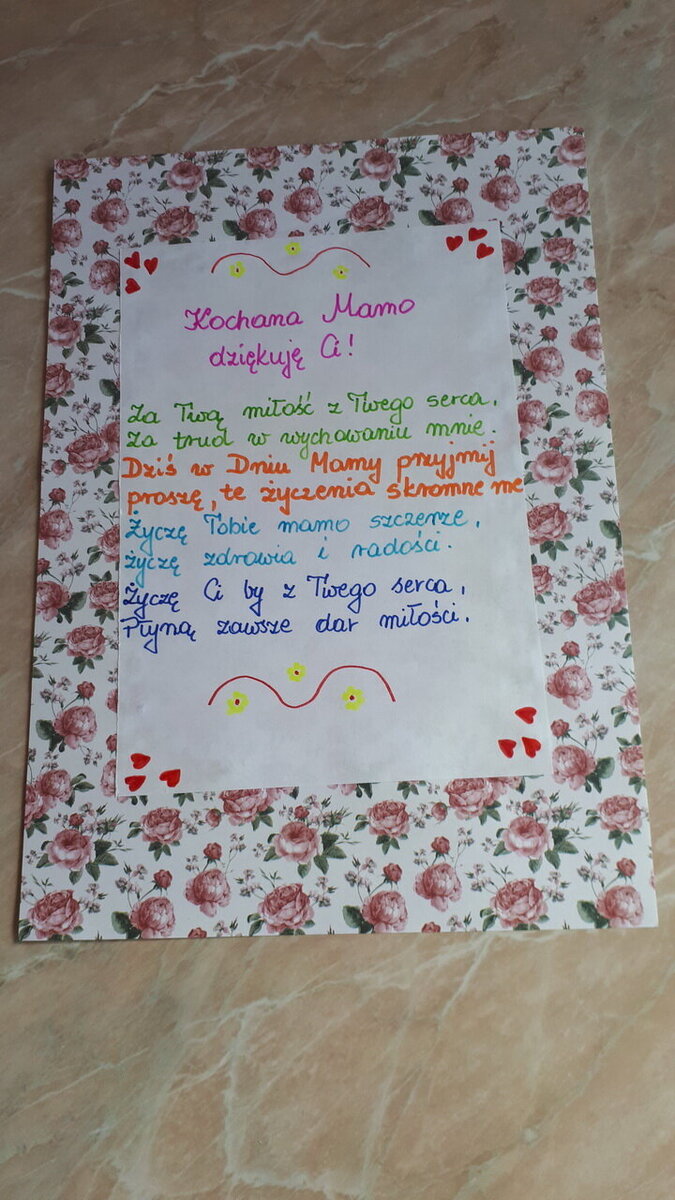 Kochana Mamo
dziękuję Ci!
Za Twą miłość z Twego serca,
Za trud w wychowaniu mnie.
Dziś w Dniu Mamy przyjmij
proszę, te życzenia skromne me
Życzę Tobie mamo szczerze,
życzę zdrowia i radości.
Życzę Ci by z Twego serca,
Płyną zawsze dar miłości.